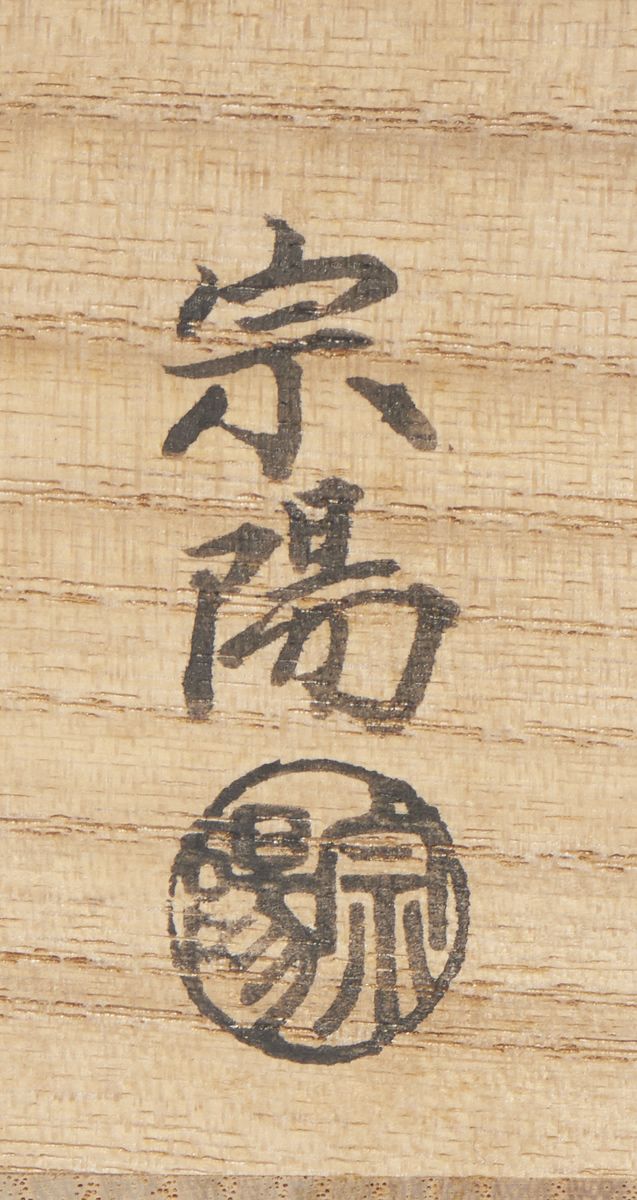 宗陽
宗陽